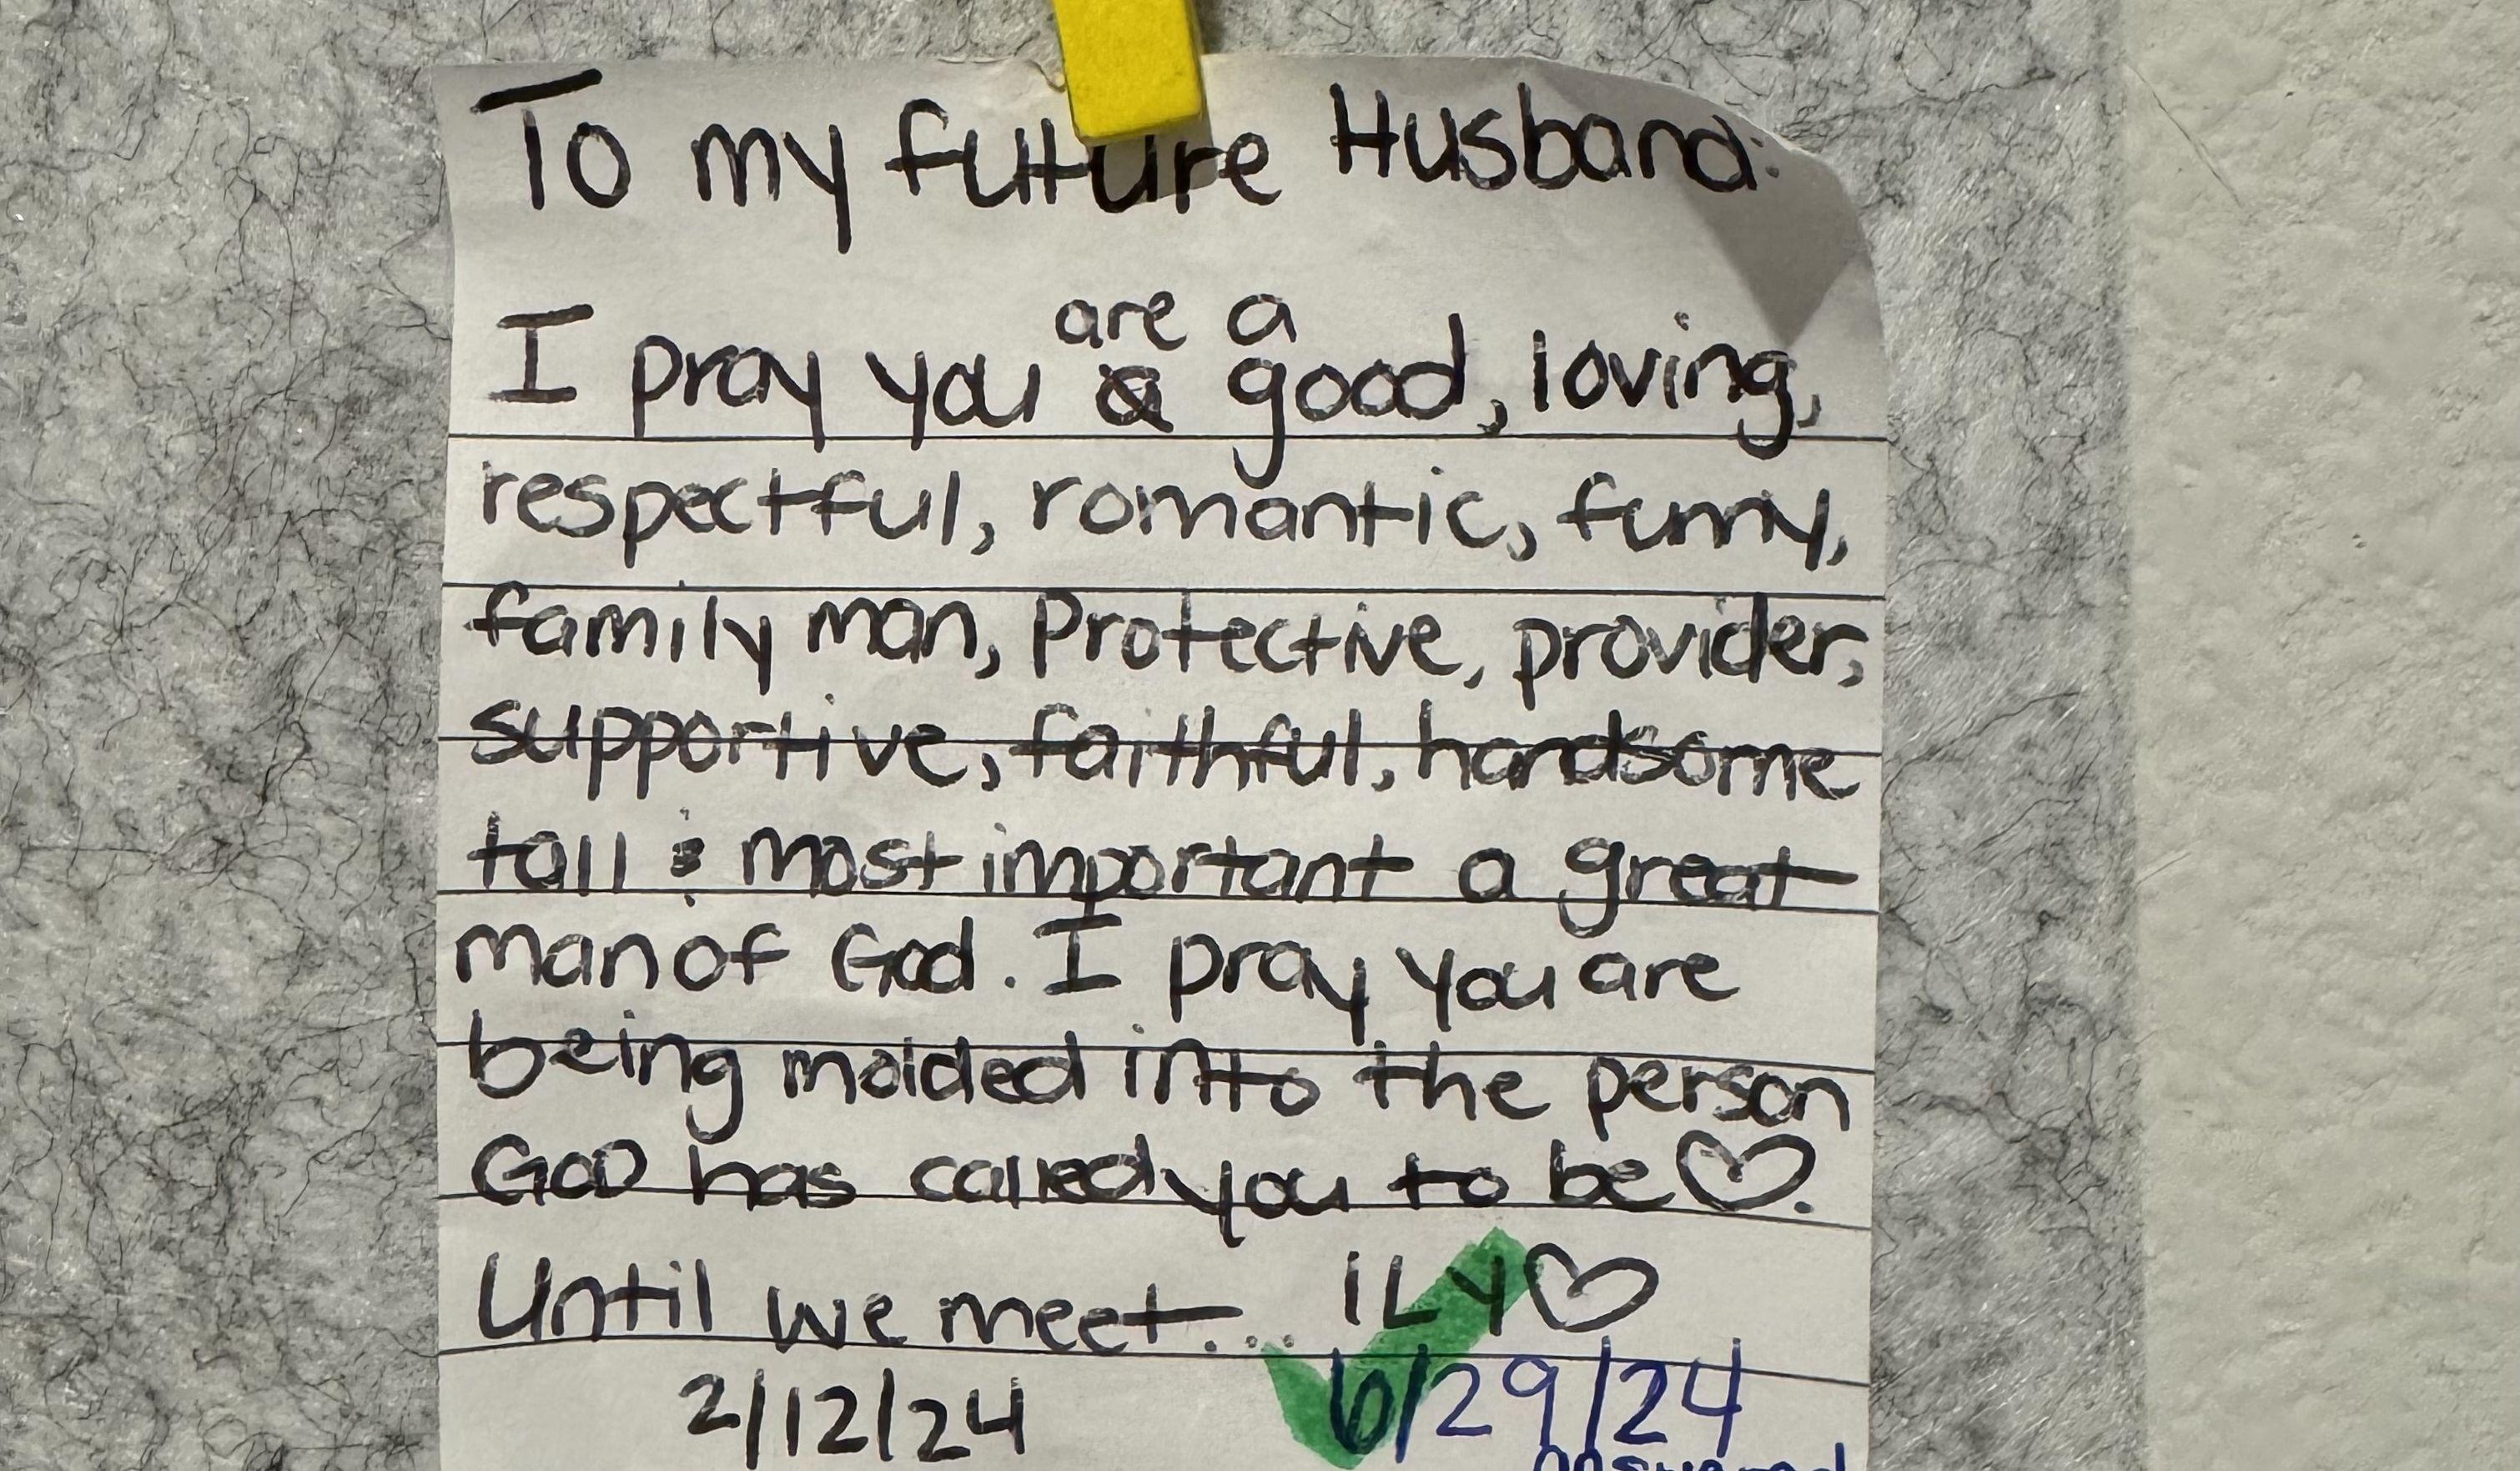 To my future Husband:
are a
I pray you a good, loving,
respectful, romantic, funny,
family man, Protective, provider,
supportive, faithful, handsome
tall & most important a great
man of God. I pray you are
being molded into the person
GOD has called you to be♡.
Until we meet... iLY♡
2/12/24 6/29/24
answered